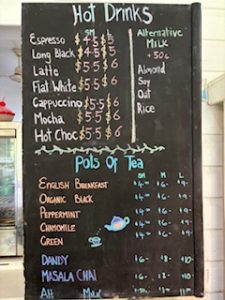 Hot Drinks
SM L
Espresso $4.5 $5
Long Black $4.5 $5
Latte $5.5 $6
Flat White $5.5 $6
Cappuccino $5.5 $6
Mocha $5.5 $6
Hot Choc $5.5 $6
Alternative
Milk
+50c
Almond
Soy
Oat
Rice
Pots Of Tea
SM M L
English Breakfast
Organic Black
Peppermint
Chamomile
Green
Dandy
Masala Chai
Milk